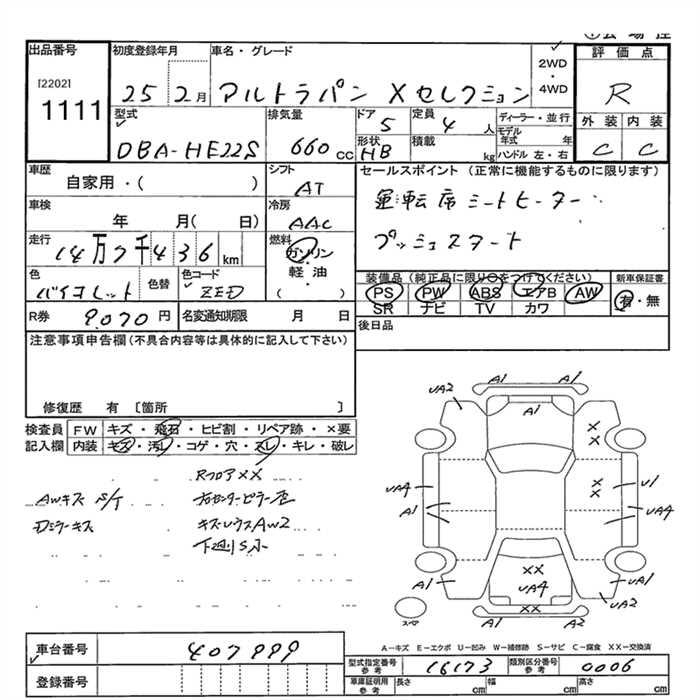 出品番号 初度登録年月 車名・グレード 評価点
[2202] 2WD
1111 25 2月 アルトラパン Xセレクション ・ 4WD R
型式 排気量 ドア 定員 ディーラー・並行 外装 内装
DBA-HE22S 660cc 5 4人 モデル年式 年 C C
形状 積載
HB kg ハンドル 左・右
車歴 シフト セールスポイント (正常に機能するものに限ります)
自家用・( ) AT 運転席シートヒーター
車検 冷房
年 月( 日) AAC プッシュスタート
走行 燃料
14万7千436km ガソリン
軽油
( )
色 色替 色コード 装備品(純正品に限り○をつけてください) 新車保証書
バイオレット ZED PS PW ABS エアB AW 有・無
SR ナビ TV カワ
R券 9,070円 名変通知期限 月 日 後日品
注意事項申告欄(不具合内容等は具体的に記入して下さい)
修復歴 有 〔箇所 〕
検査員 FW キズ・飛石・ヒビ割・リペア跡・×要
記入欄 内装 キズ・汚レ・コゲ・穴・スレ・キレ・破レ
RフロアXX
AWキズ S/T
Dミラーキズ
キズ
AW2
下廻りS小
A1 A1
UA2 A1
X
X
UA4 X U1
A1 X UA4
A1 XX U1
UA4 UA2
スペア XX A2
A-キズ E-エクボ U-凹み W-補修跡 S-サビ C-腐食 XX-交換済
車台番号 407999 型式指定番号 参考 16173 類別区分番号 参考 0006
登録番号 車庫証明用 参考 長さ cm 幅 cm 高さ cm